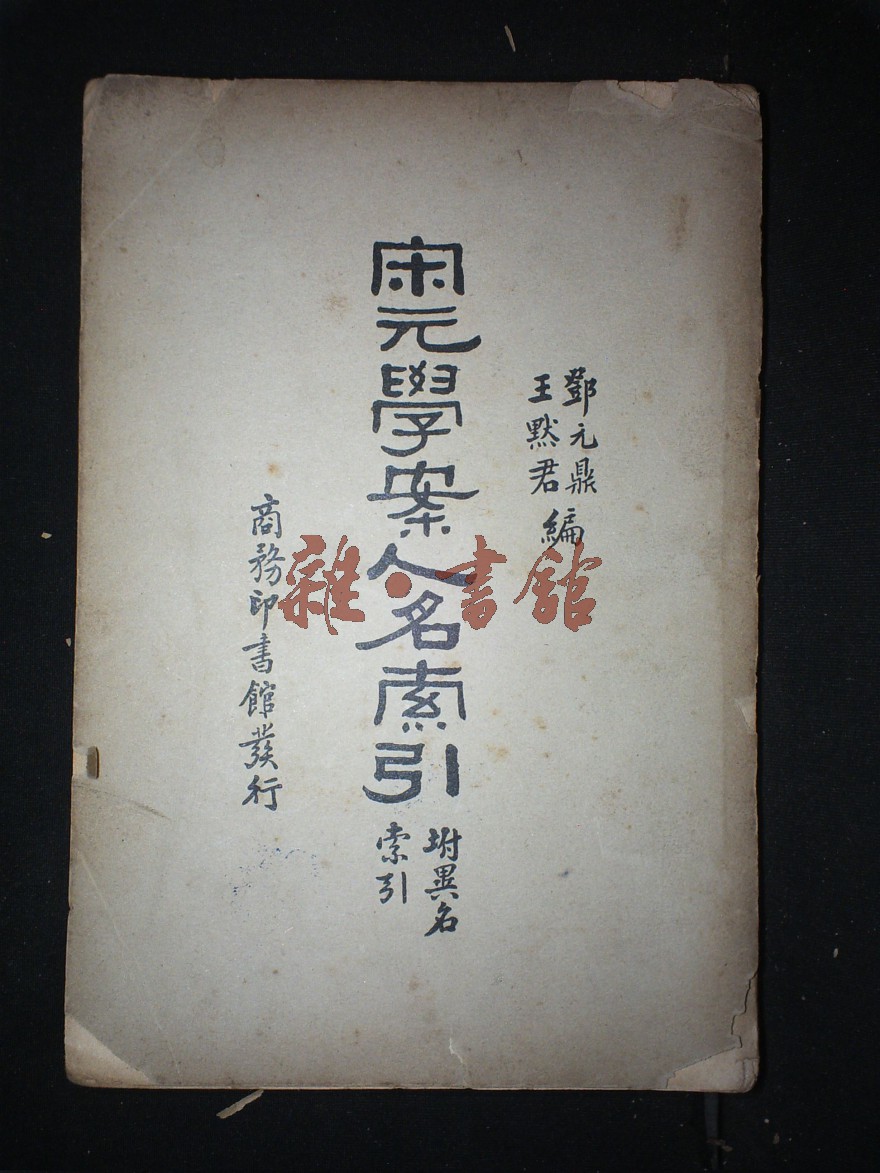 鄧元鼎
王默君
編
宋元學案人名索引
坿異名
索引
商務印書館發行
雜·書館